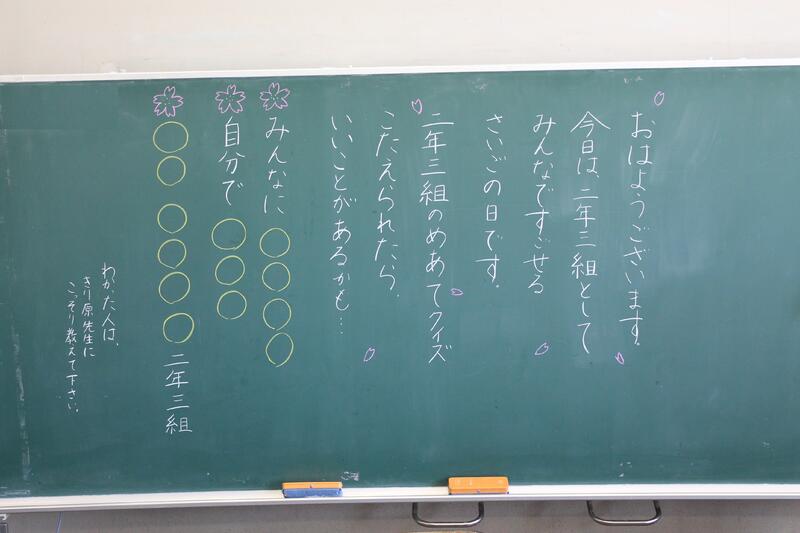 おはようございます。
今日は、二年三組として
みんなですごせる
さいごの日です。
二年三組のめあてクイズ
こたえられたら、
いいことがあるかも…
みんなに○○○○
自分で○○○
○○○○○○二年三組
わかった人は、
きり原先生に
こっそり教えて下さい。